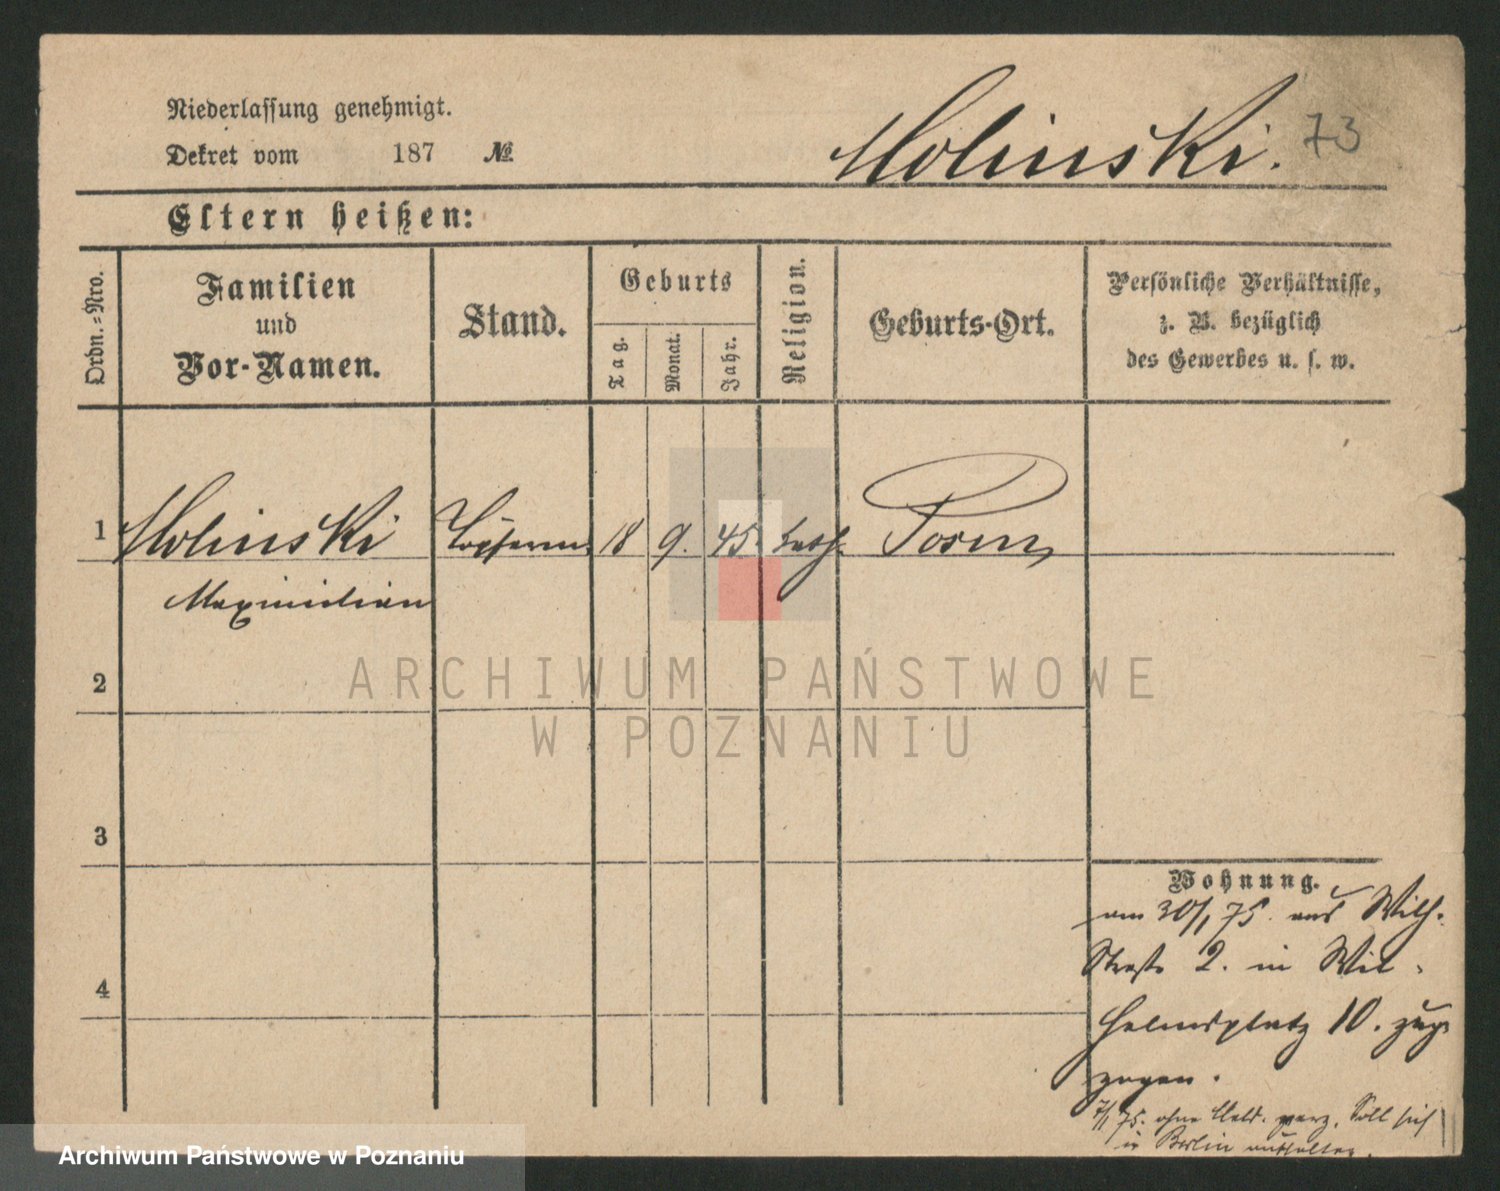 Niederlassung genehmigt.
Dekret vom 187 №
Molinski. 73
Eltern heißen:
Ordn.-Nro.
Familien
und
Vor-Namen.
Stand.
Geburts
Tag.
Monat.
Jahr.
Religion.
Geburts-Ort.
Persönliche Verhältnisse,
z. B. bezüglich
des Gewerbes u. s. w.
1 Molinski 18 9. 45. kath. Posen
Maximilian
2
3
4
Wohnung.
am 30/1 75. aus Wilh.
Straße 2. in Wil-
helmsplatz 10.
zogen.
75. ohne Meld. verz. Soll sich
in Berlin aufhalten.
ARCHIWUM PAŃSTWOWE
W POZNANIU
Archiwum Państwowe w Poznaniu